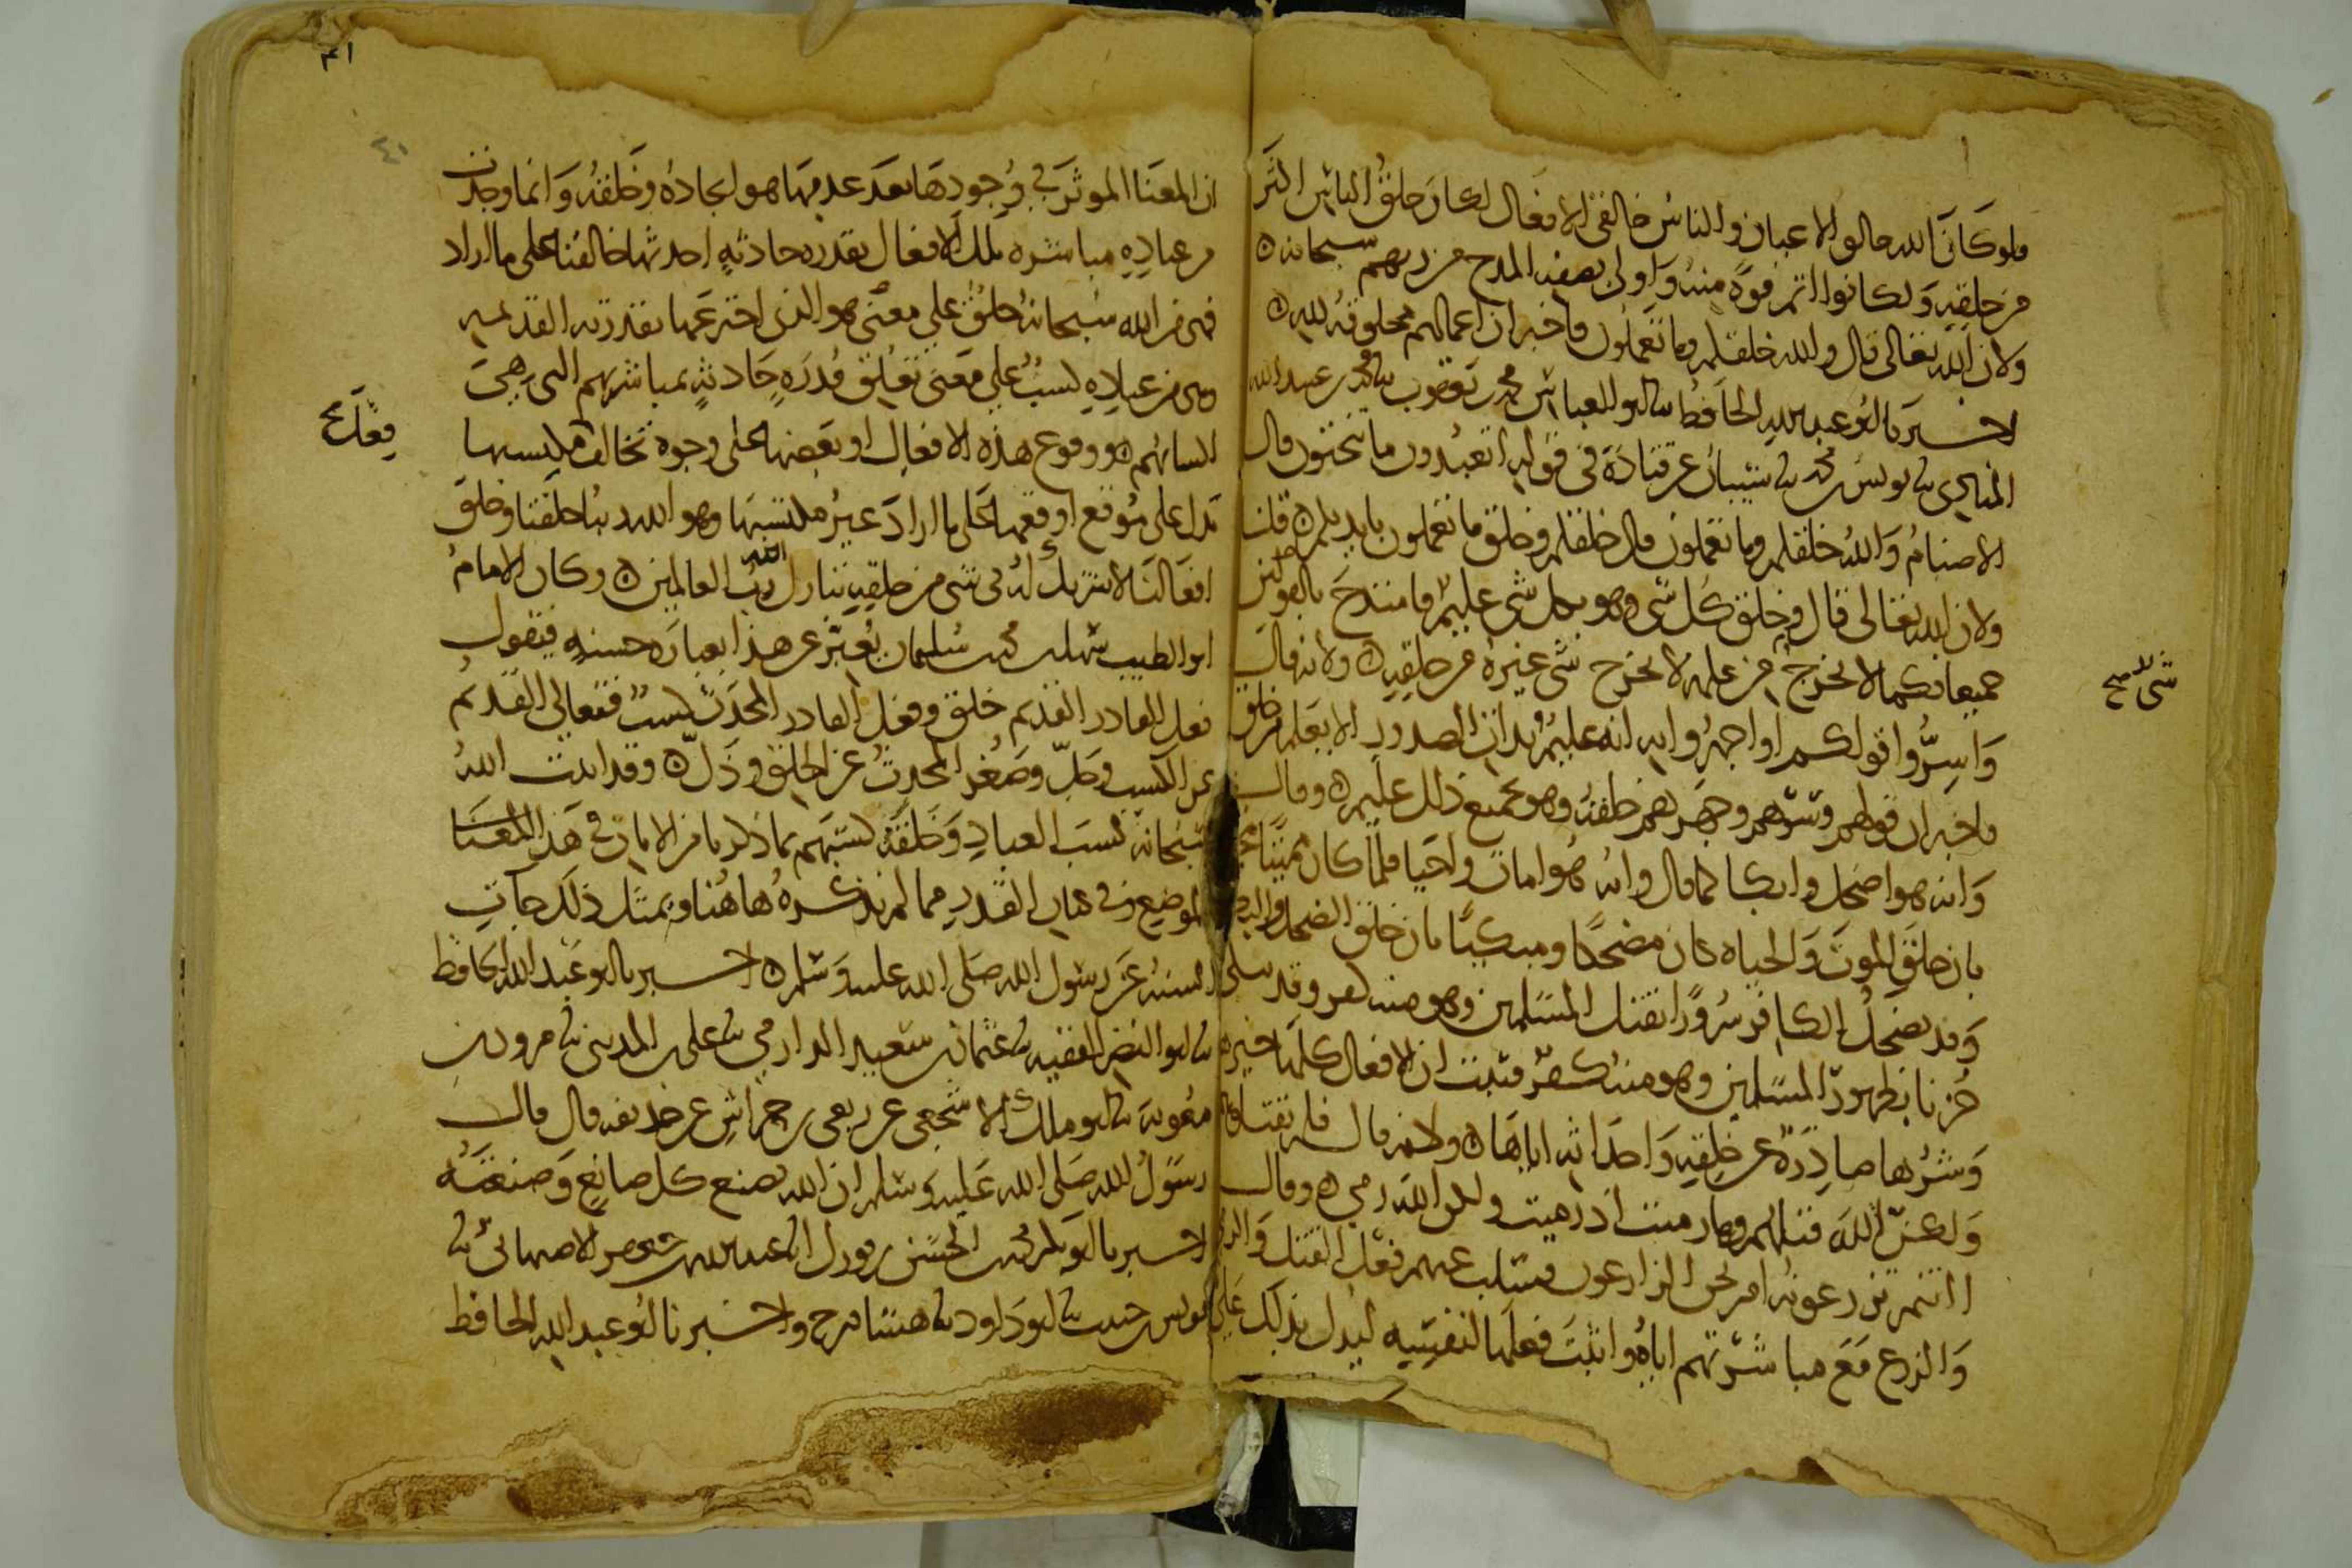 فلو كان الله خالق الاعيان والناس خالقي الافعال لكان خلق الناس اكثر
من خلقه ولكانوا اتم قوة منه واولى بصفة المدح من ربهم سبحانه ه
ولان الله تعالى قال والله خلقكم وما تعملون فاخبر ان اعمالهم مخلوقة لله ه
اخبرنا ابو عبد الله الحافظ ثنا ابو العباس محمد بن يعقوب ثنا محمد بن عبيد الله
المنادي ثنا يونس بن محمد ثنا شيبان عن قتادة في قوله اتعبدون ما تنحتون قال
الاصنام والله خلقكم وما تعملون قال خلقكم وخلق ما تعملون بايديكم ه قلت
ولان الله تعالى قال وخلق كل شي وهو بكل شي عليم فامتدح بالقولين
جميعا فكما لا يخرج من علمه لا يخرج شي غيره من خلقه ه ولانه قال
شي لا صح
واسروا قولكم او اجهروا به انه عليم بذات الصدور الا يعلم من خلق
فاخبر ان قولهم وسرهم وجهرهم خلقه وهو بجميع ذلك عليم ه وقال
وانه هو اضحك وابكا كما قال وانه هو امات واحيا فلما كان مميتا
بان خلق الموت والحياه كان مضحكا ومبكيا بان خلق الضحك والبكا
وقد يضحك الكافر سرورا بقتل المسلمين وهو منه كفر وقد يبكي
حزنا بظهور المسلمين وهو منه كفر فثبت ان الافعال كلها خيرها
وشرها صادرة عن خلقه واحداثه اياها ه ولانه قال فلم تقتلوهم
ولكن الله قتلهم وما رميت اذ رميت ولكن الله رمى ه وقال
اانتم تزرعونه ام نحن الزارعون فسلب عنهم فعل القتل والرمي
والزرع مع مباشرتهم اياه واثبت فعلها لنفسه ليدل بذلك على
٤١
ان المعنا الموثر في وجودها بعد عدمها هو ايجاده وخلقه وانما وجدت
من عباده مباشرة تلك الافعال بقدرة حادثة احدثها خالقنا على ما اراد
فهي من الله سبحانه خلق على معنى هو الذي اخترعها بقدرته القديمه
وهي من عباده كسب على معنى تعلق قدرة حادثة بمباشرتهم التي هي
اكسابهم ه ووقوع هذه الافعال او بعضها على وجوه تخالف مكتسبها
يدل على موقع اوقعها على ما اراد غير مكتسبها وهو الله ربنا خلقنا وخلق
افعالنا لا شريك له في شي من خلقه تبارك الله رب العالمين ه وكان الامام
ابو الطيب سهل بن محمد بن سليمان يعبر عن هذا بعبارة حسنة فيقول
فعل القادر القديم خلق وفعل القادر المحدث كسب فتعالى القديم
عن الكسب وجل وصغر المحدث عن الخلق وذل ه وقد اثبت الله
سبحانه كسب العباد وخلقه كسبهم بما ذكرنا من الايات في هذا المعنا
الموضع وفي كتاب القدر مما لم نذكره هاهنا وبمثل ذلك جات
السنة عن رسول الله صلى الله عليه وسلم ه اخبرنا ابو عبد الله الحافظ
ثنا ابو النضر الفقيه ثنا عثمان بن سعيد الدارمي ثنا علي بن المديني ثنا مروان بن
معويه ثنا ابو ملك الاشجعي عن ربعي بن حراش عن حذيفه قال قال
رسول الله صلى الله عليه وسلم ان الله يصنع كل صانع وصنعته
اخبرنا ابو بكر محمد بن الحسن بن فورك انا عبد الله بن جعفر الاصبهاني ثنا
يونس بن حبيب ثنا ابو داود ثنا هشام ح واخبرنا ابو عبد الله الحافظ